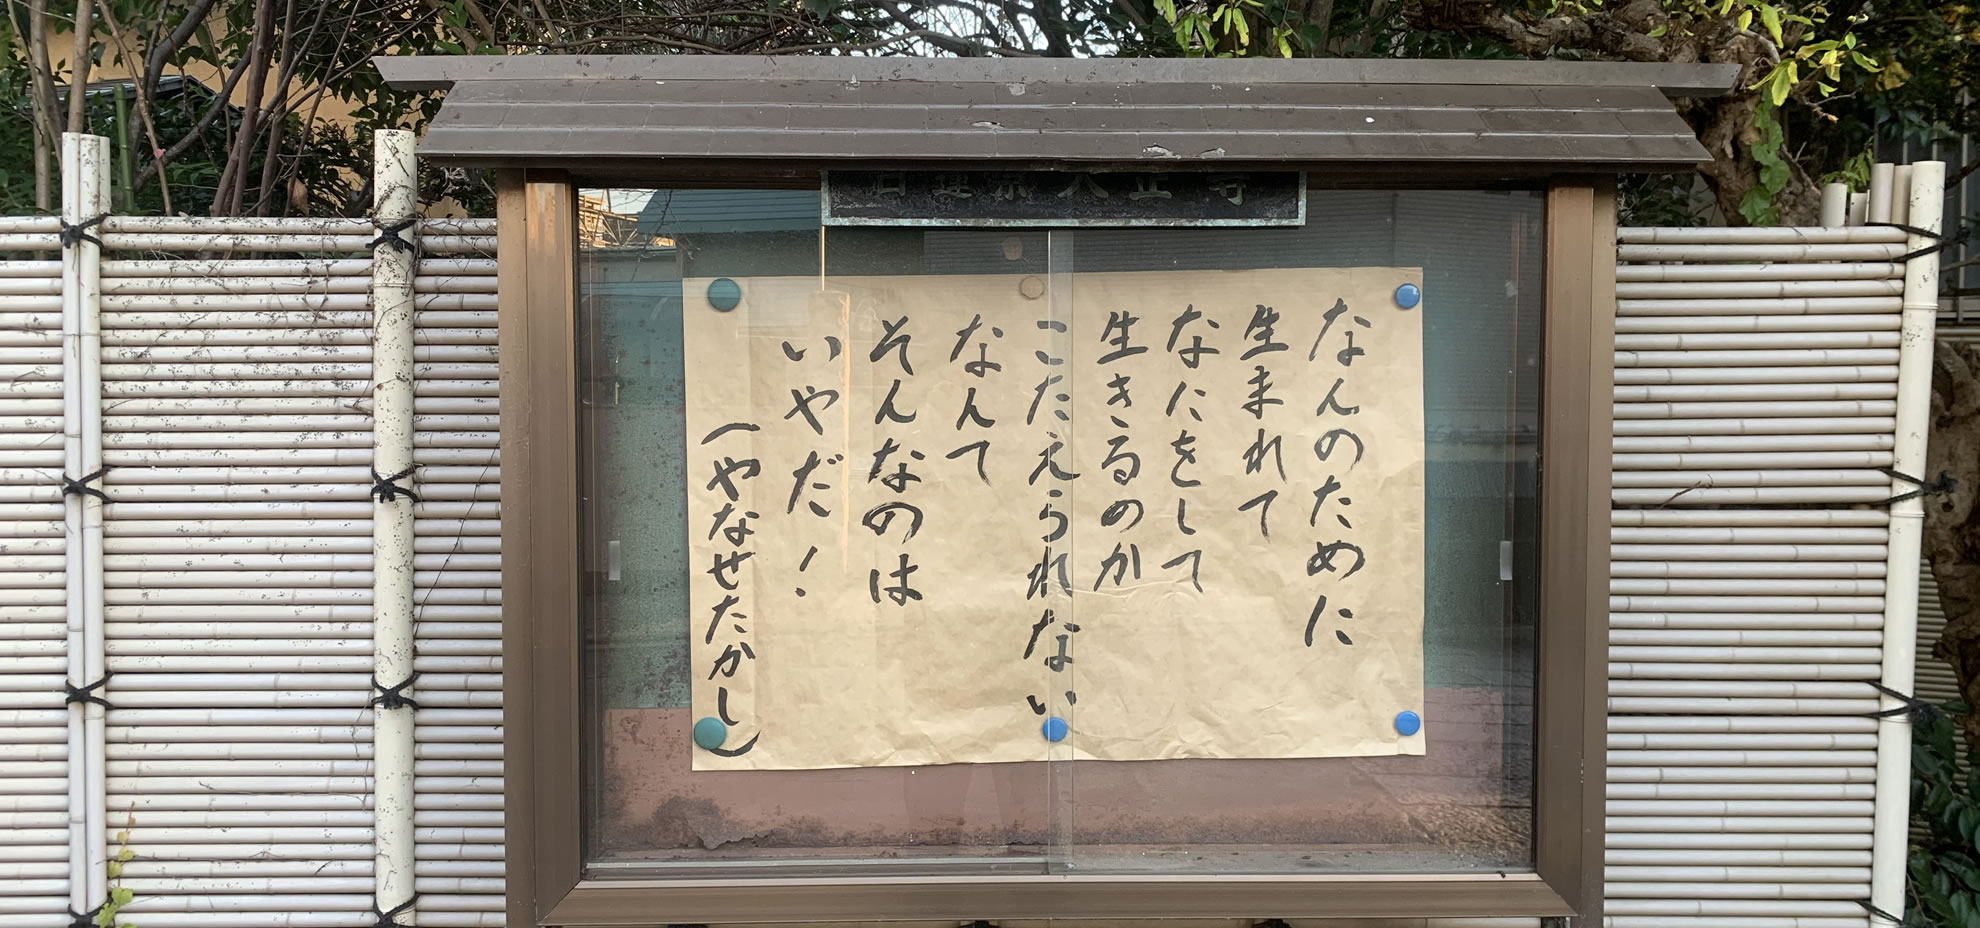 日蓮宗大正寺
なんのために
生まれて
なにをして
生きるのか
こたえられない
なんて
そんなのは
いやだ!
(やなせたかし)